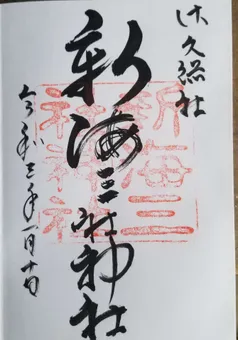 佐久総社
新海三社神社
令和三年一月十日
新海三
社神社